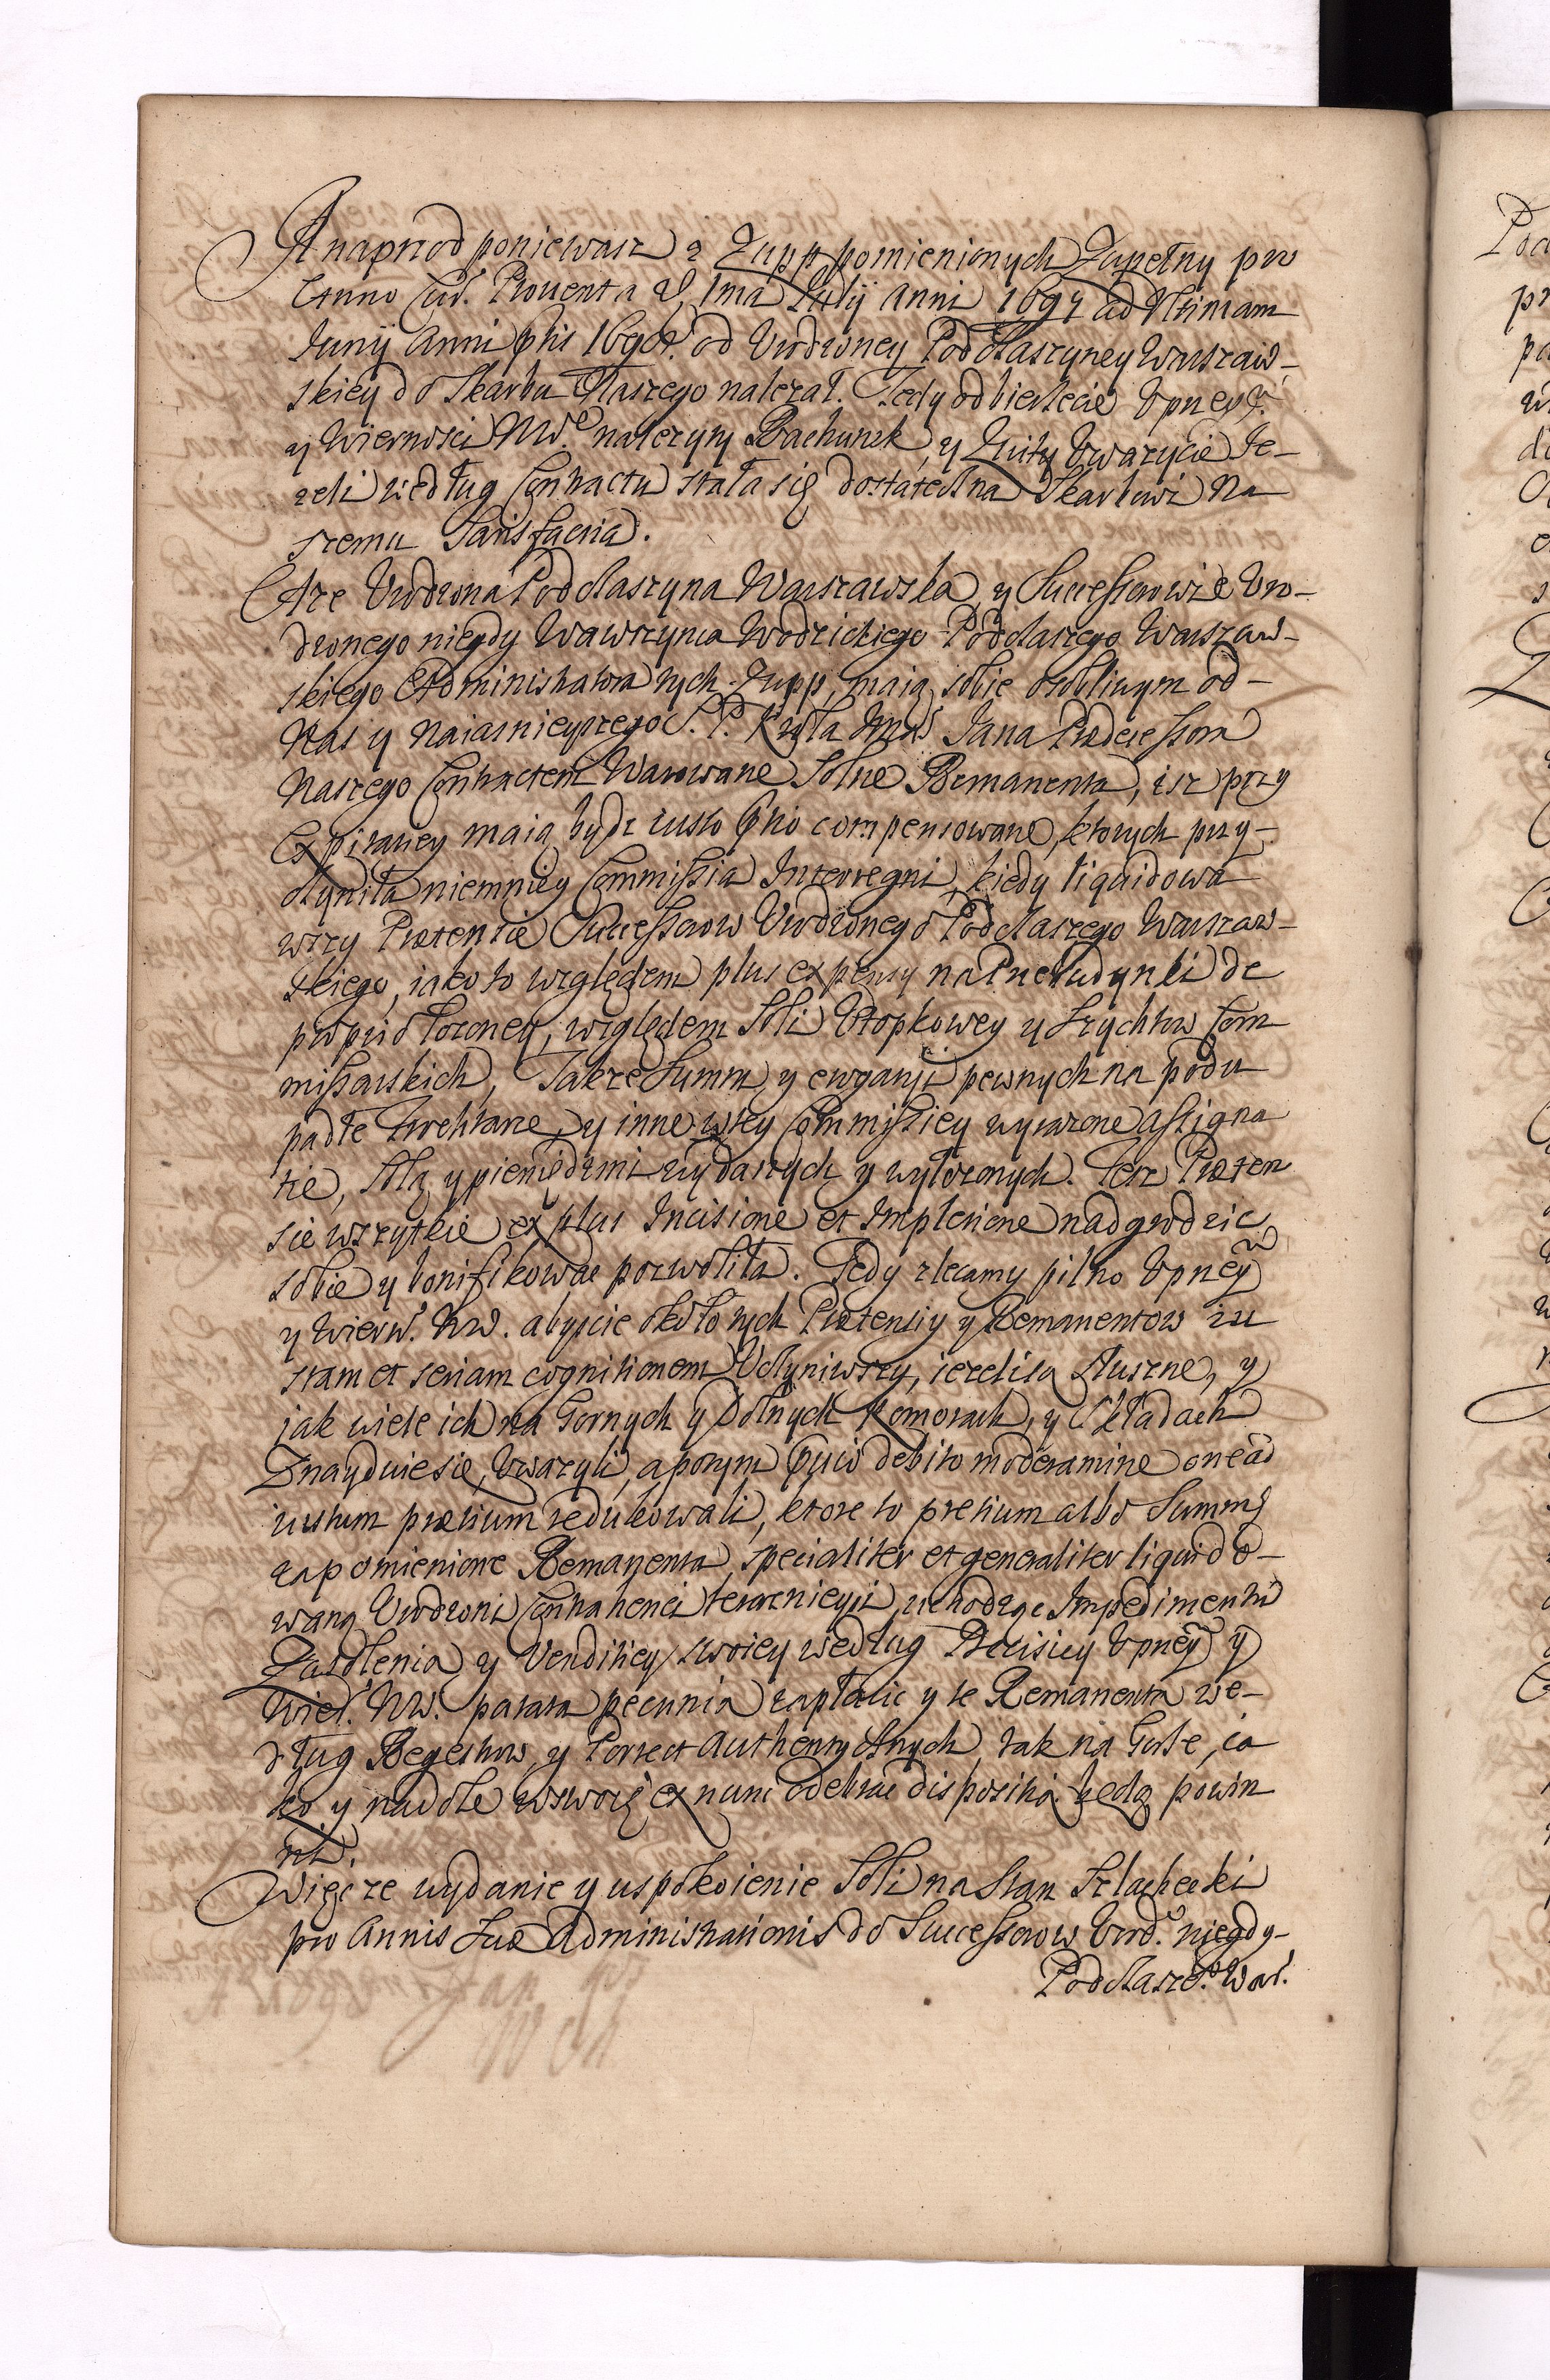 A naprzod poniewasz z Zupp pomienionych Zupełny pro
Anno Prouent a 1ma Julij Anni 1697 ad Vltimam
Junij Anni 1698. od Vrodzoney Podczaszyney Warszaw-
skiey do Skarbu Naszego nalezał. Tedy odbierzecie Vprzey.
y Wiernosci Nw. nalezyty Rachunek, y Zuity Vwazycie Je-
zeli według Contractu stała się dostateczna Skarbowi Na
szemu Satisfactia.
A ze Vrodzona Podczaszyna Warszawska, y Successorowie Vro-
dzonego niegdy Wawrzynca Wodzickiego Podczaszego Warszaw-
skiego Administratora tych Zupp, maią sobie osobliwym od
Nas y Naiasnieyszego S. P. Krola Jmci Jana Predecessora
Naszego Contractem Warowane Solne Remanenta, isz przy
Expiraney maią bydz iusto compensowane, ktorych przy-
czyniła niemniey Commissia Interregni, kiedy liquidowa
wszy Pretensie Successorow Vrodzonego Podczaszego Warszaw-
skiego, iako to względem plus expensy na budynki de
proprio łozoney, względem Soli Tłopkowey y Szychtow Com
missarskich, Takze Summ, y ewganij pewnych na podu
padłe y inne wtey Commissiey wyrazone assigna
tie, Solą y pieniędzmi wydatych y wyłozonych. Tesz Preten
sie wszytkie ex plus Incisione et Impletione nadgrodzic
sobie y bonifikowac pozwoliła. Tedy zlecamy pilno Vprzey
y Wiern. Nw. abyscie około tych Pretensiy y Remanentow iu
stam et seriam cognitionem Vczyniwszy, iezeli są słuszne, y
jak wiele ich na Gornych y Dolnych Komorach, y Składach
Znayduie sie, Vwazyli, a potym debito moderamine one ad
iustum pretium redukowali, ktore to pretium albo Summę
za pomienione Remanenta specialiter et generaliter liquido-
waną Vrodzoni Contrahenci teraznieysi, uchodząc Impedimentu
Zasolenia y Venditiey swoiey według Decisiey Vprzey y
Wier. Nw. parata pecunia zapłacic y te Remanenta we-
dług Regestrow, y Authentycznych, tak na Gorze, ia
ko y na dole w swoię ex nunc odebrac dispositią będą powin
ni.
Więc ze wydanie y uspokoienie Soli na Stan Szlachecki
pro Annis Suae Administrationis do Successorow Vrod. niegdy
Podczasze. War.